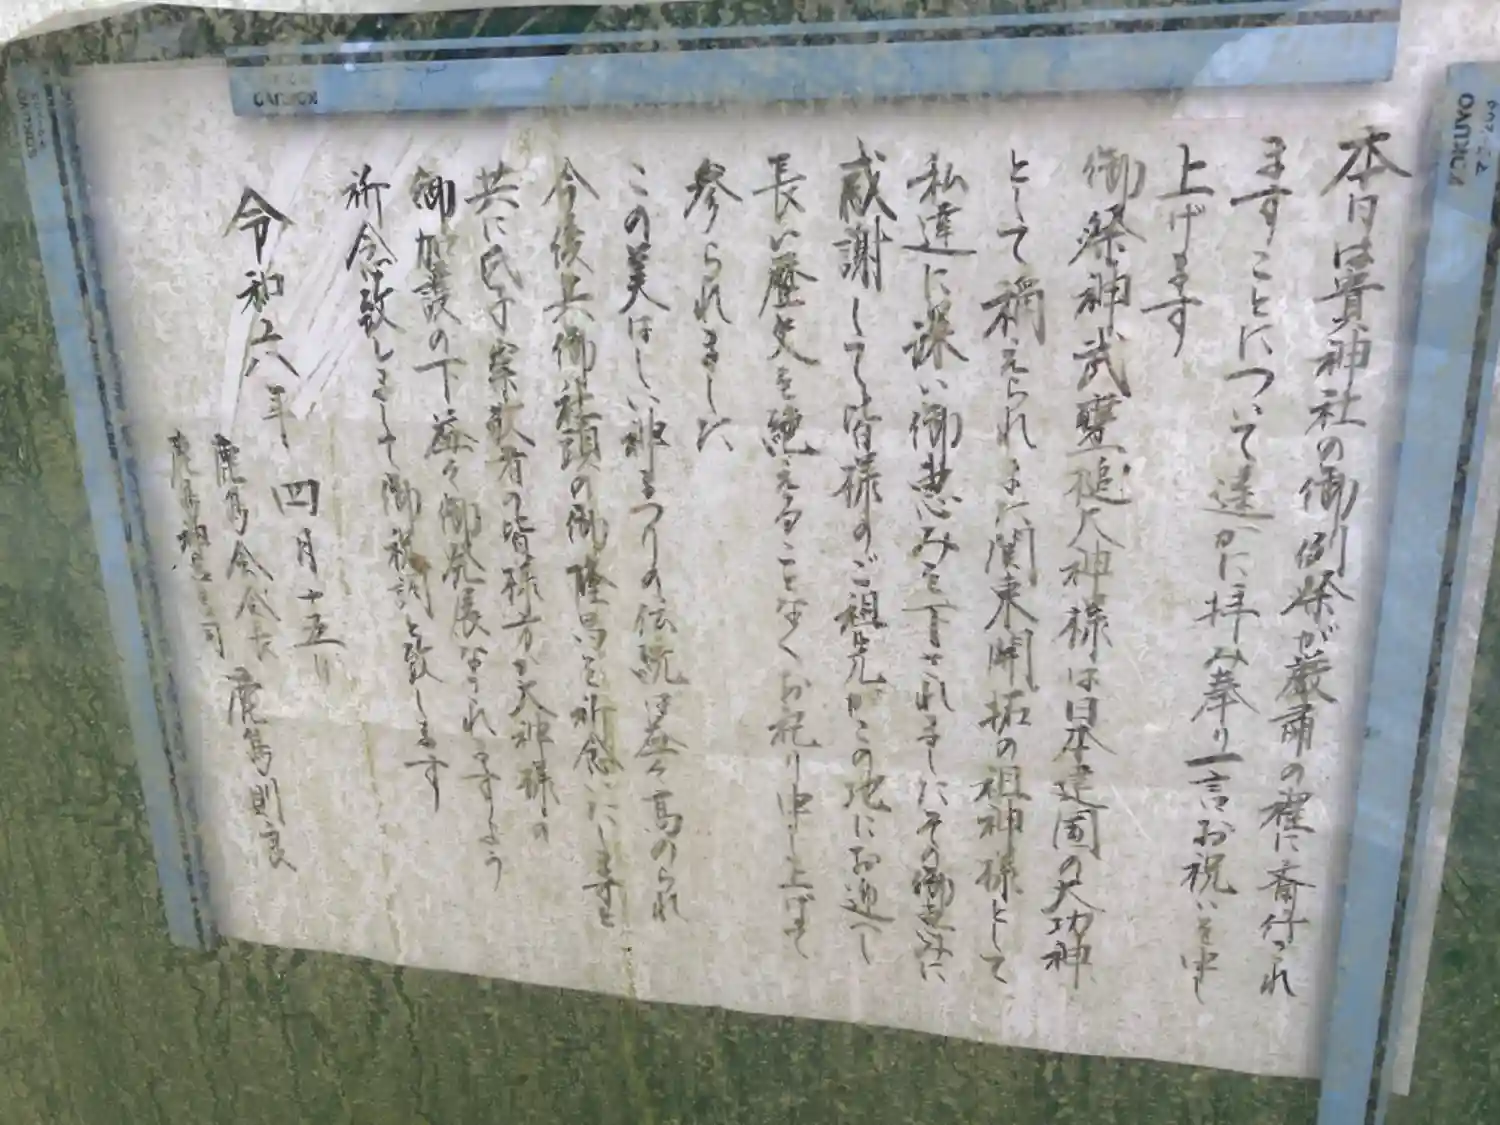 本日は貴神社の御例祭が厳粛の裡に斎行され
ますことについて遥かに拝み奉り一言お祝いを申し
上げます
御祭神武甕槌大神様は日本建国の大功神
として称えられまた関東開拓の祖神様として
私達に深い御恵みを下されましたその御恵みに
感謝して皆様のご祖先がこの地にお迎へし
長い歴史を絶えることなくお祀り申し上げて
参られました
この美はしい神まつりの伝統は益々高められ
今後共御社頭の御隆昌を祈念いたしますと
共に氏子崇敬者の皆様方が大神様の
御加護の下益々御発展なされますよう
祈念致しまして御祝詞と致します
令和六年 四月十五日
鹿島会会長 鹿島則良
鹿島神宮宮司